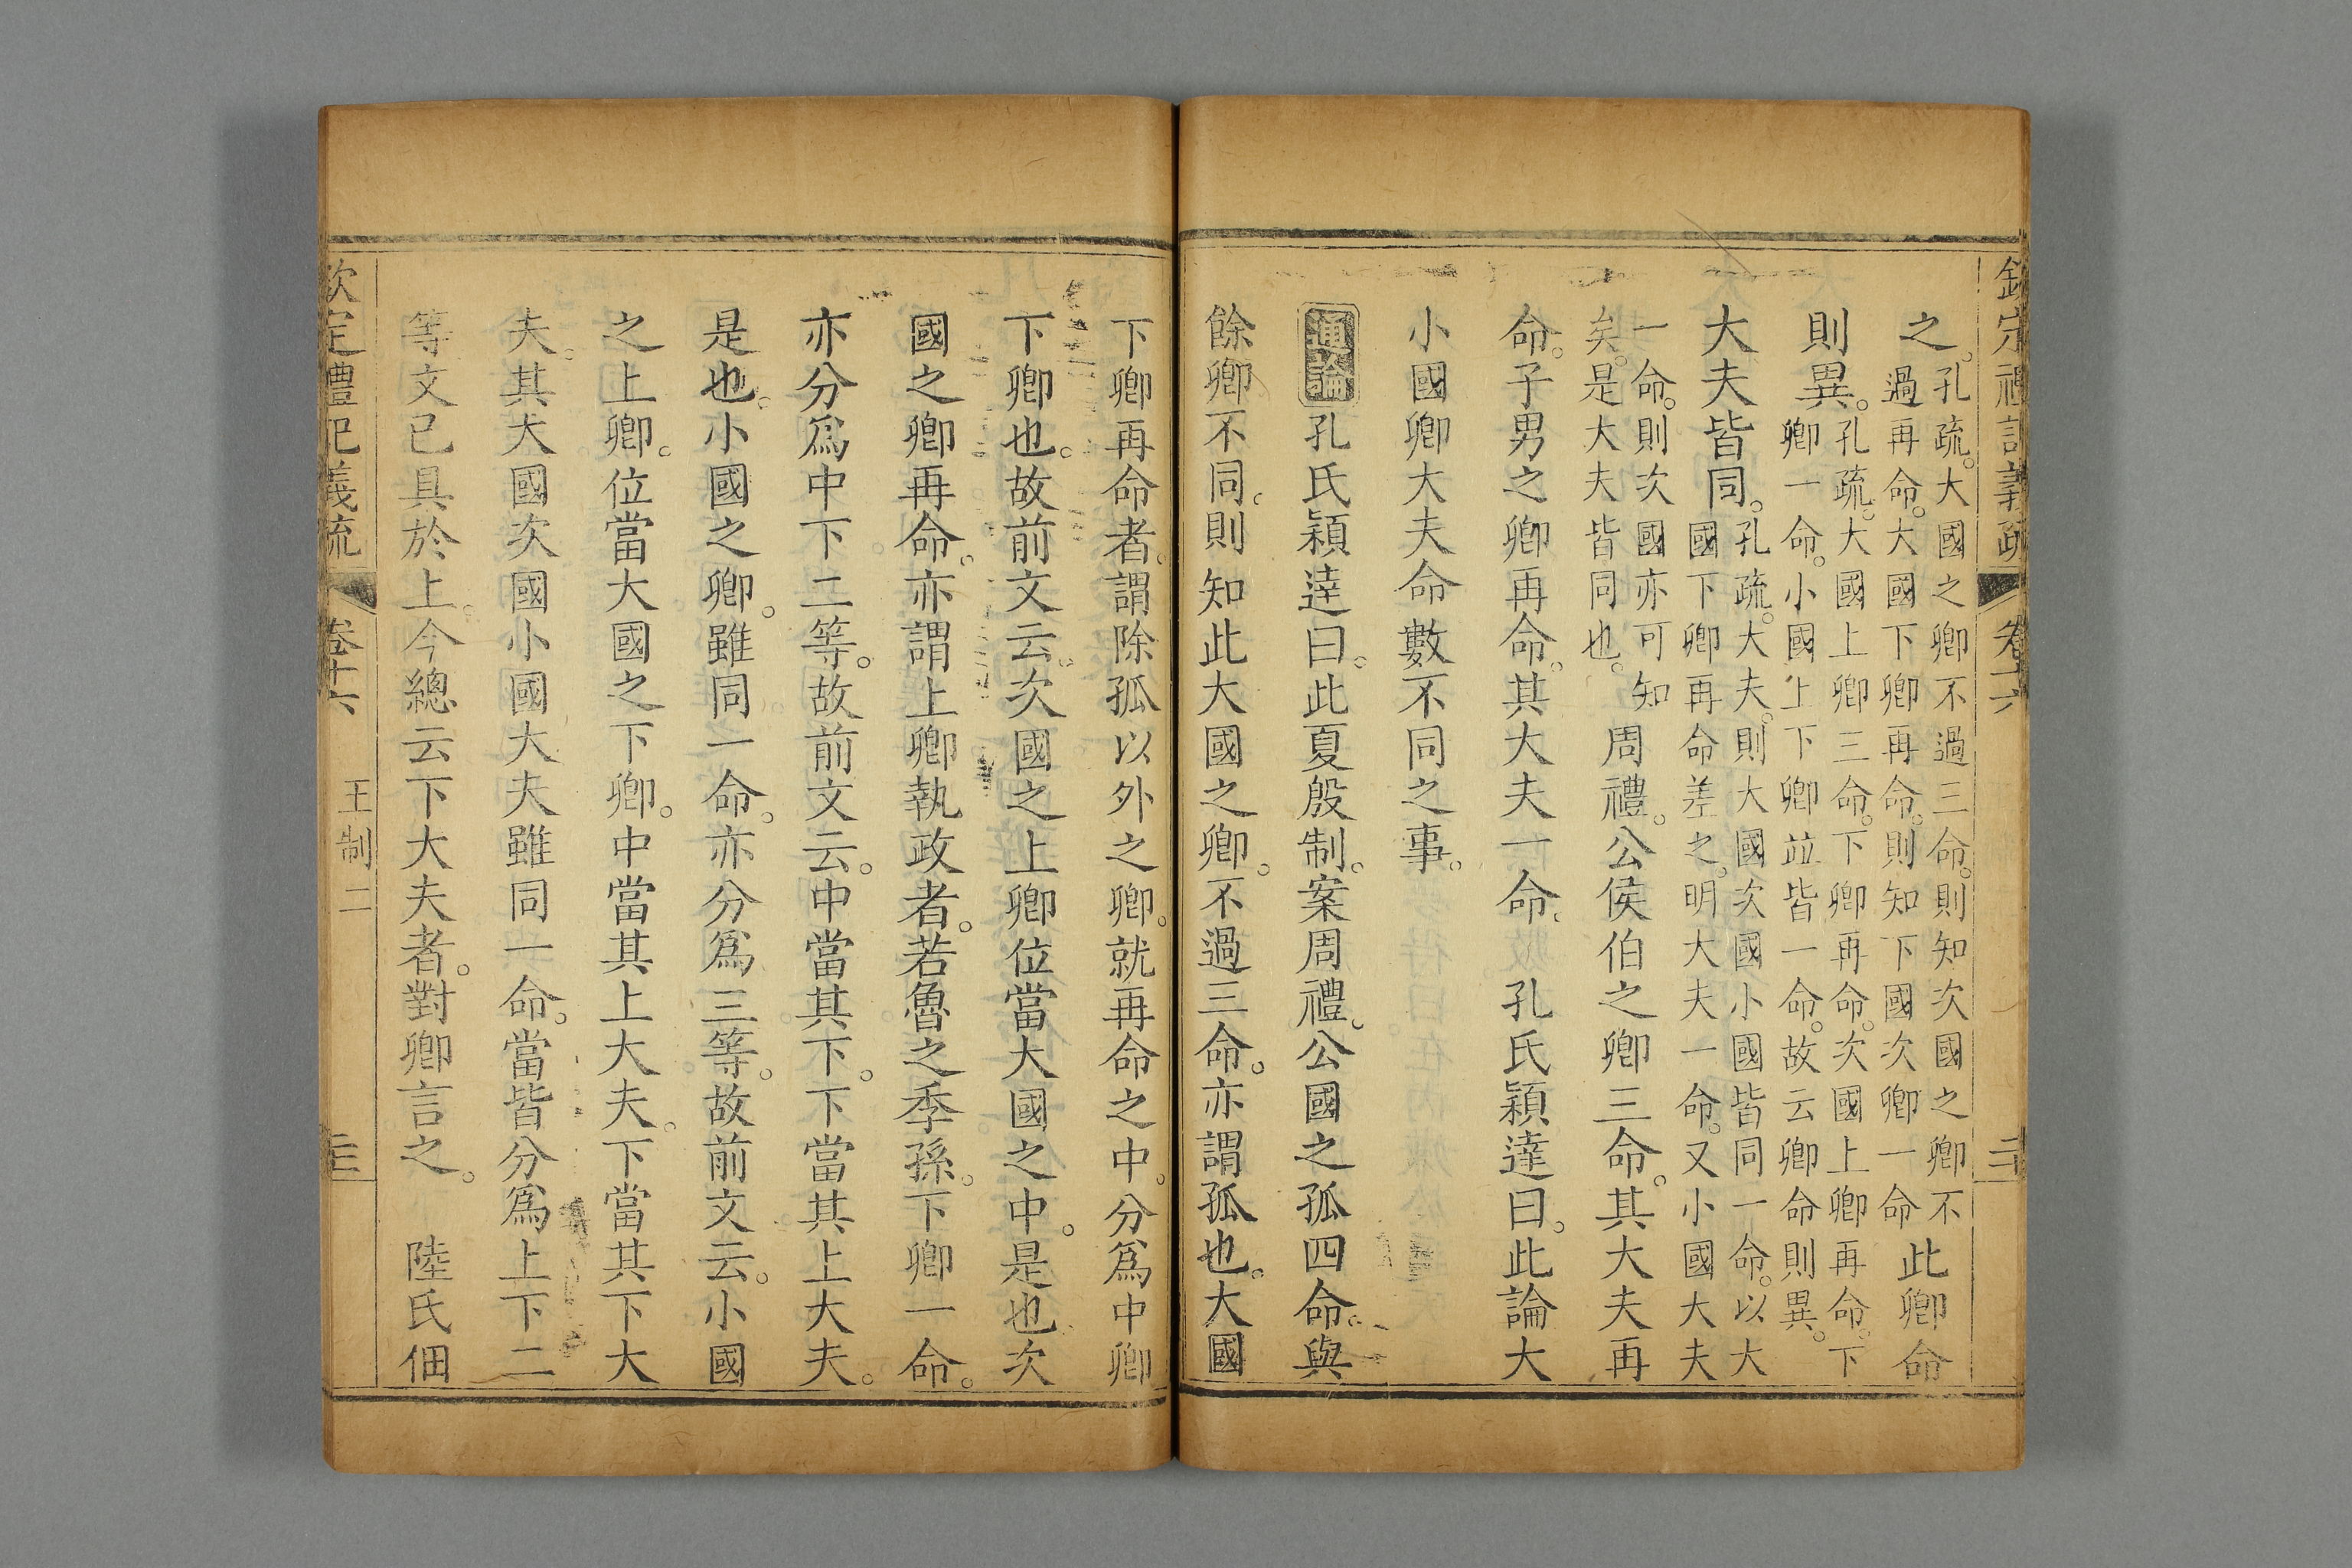 欽定禮記義疏 卷十六
之。孔疏。大國之卿不過三命。則知次國之卿不過再命。大國下卿再命。則知下國次卿一命此卿命
則異。孔疏。大國上卿三命。下卿再命。次國上卿再命。下卿一命。小國上下卿並皆一命。故云卿命則異。
大夫皆同。孔疏。大夫。則大國次國小國皆同一命。以大國下卿再命差之。明大夫一命。又小國大夫
一命。則次國亦可知矣。是大夫皆同也。周禮。公侯伯之卿三命。其大夫再
命。子男之卿再命。其大夫一命。 孔氏穎達曰。此論大
小國卿大夫命數不同之事。
通論孔氏穎達曰。此夏殷制。案周禮。公國之孤四命。與
餘卿不同。則知此大國之卿。不過三命。亦謂孤也。大國
下卿再命者。謂除孤以外之卿。就再命之中。分爲中卿
下卿也。故前文云。次國之上卿位當大國之中。是也次
國之卿再命。亦謂上卿執政者。若魯之季孫。下卿一命。
亦分爲中下二等。故前文云。中當其下。下當其上大夫。
是也。小國之卿。雖同一命。亦分爲三等。故前文云。小國
之上卿。位當大國之下卿。中當其上大夫。下當其下大
夫。其大國次國小國大夫雖同一命。當皆分爲上下二
等文已具於上。今總云下大夫者。對卿言之。 陸氏佃
欽定禮記義疏 卷十六 王制二